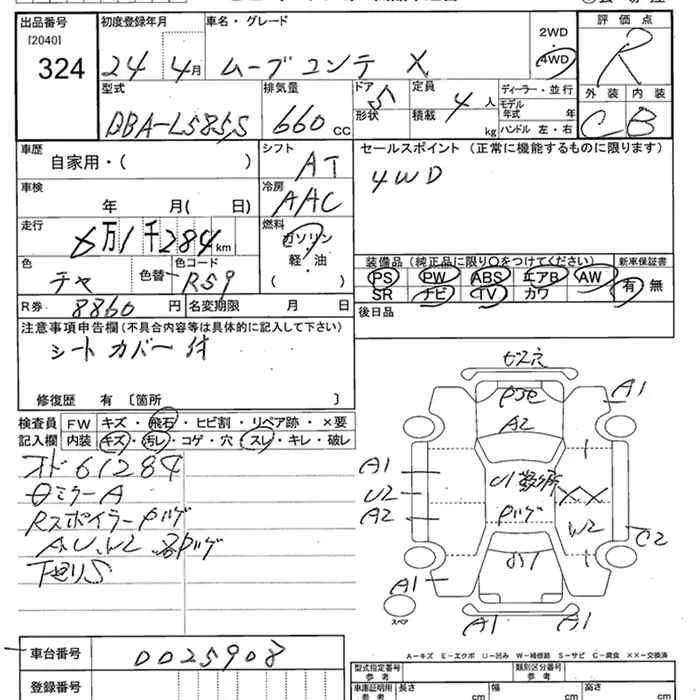 出品番号 初度登録年月 車名・グレード 2WD 4WD 評価点
[2040]
324 24年 4月 ムーブコンテ X R
型式 排気量 ドア 定員 ディーラー・並行 外装 内装
DBA-L585S 660cc 5 形状 積載 4人 kg モデル年式 年 ハンドル 左・右 C B
車歴 自家用・( ) シフト AT セールスポイント(正常に機能するものに限ります)
車検 年 月( 日) 冷房 AAC 4WD
走行 6万1千284km 燃料 ガソリン・軽・油 ( )
色 チャ 色替 色コード R59 装備品(純正品に限り○をつけてください) 新車保証書
PS PW ABS エアB AW 有・無
SR ナビ TV カワ
R券 8860円 名変期限 月 日 後日品
注意事項申告欄(不具合内容等は具体的に記入して下さい)
シートカバー付
修復歴 有 〔箇所 〕
検査員 FW キズ・飛石・ヒビ割・リペア跡・×要
記入欄 内装 キズ・汚レ・コゲ・穴・スレ・キレ・破レ
オド61284
Rスポイラー Pハゲ
A,U,W2 各Pハゲ
下廻りS
A2
A1
A1
U2
A2
U1数ヶ所
Pハゲ
XX
W2
C2
A1
A1
A1
スペア
A-キズ E-エクボ U-凹み W-補修跡 S-サビ C-腐食 ××-交換済
車台番号 0025908
登録番号
型式指定番号 参考 類別区分番号 参考
車庫証明用 参考 長さ cm 幅 cm 高さ cm